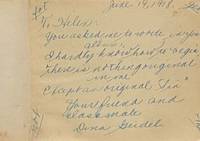 June 14, 1918.
To Helen:
You asked me to write in your
album,
I hardly know how to begin
There is nothing original
in me
Except original Sin"
Your friend and
classmate
Dona Seidel